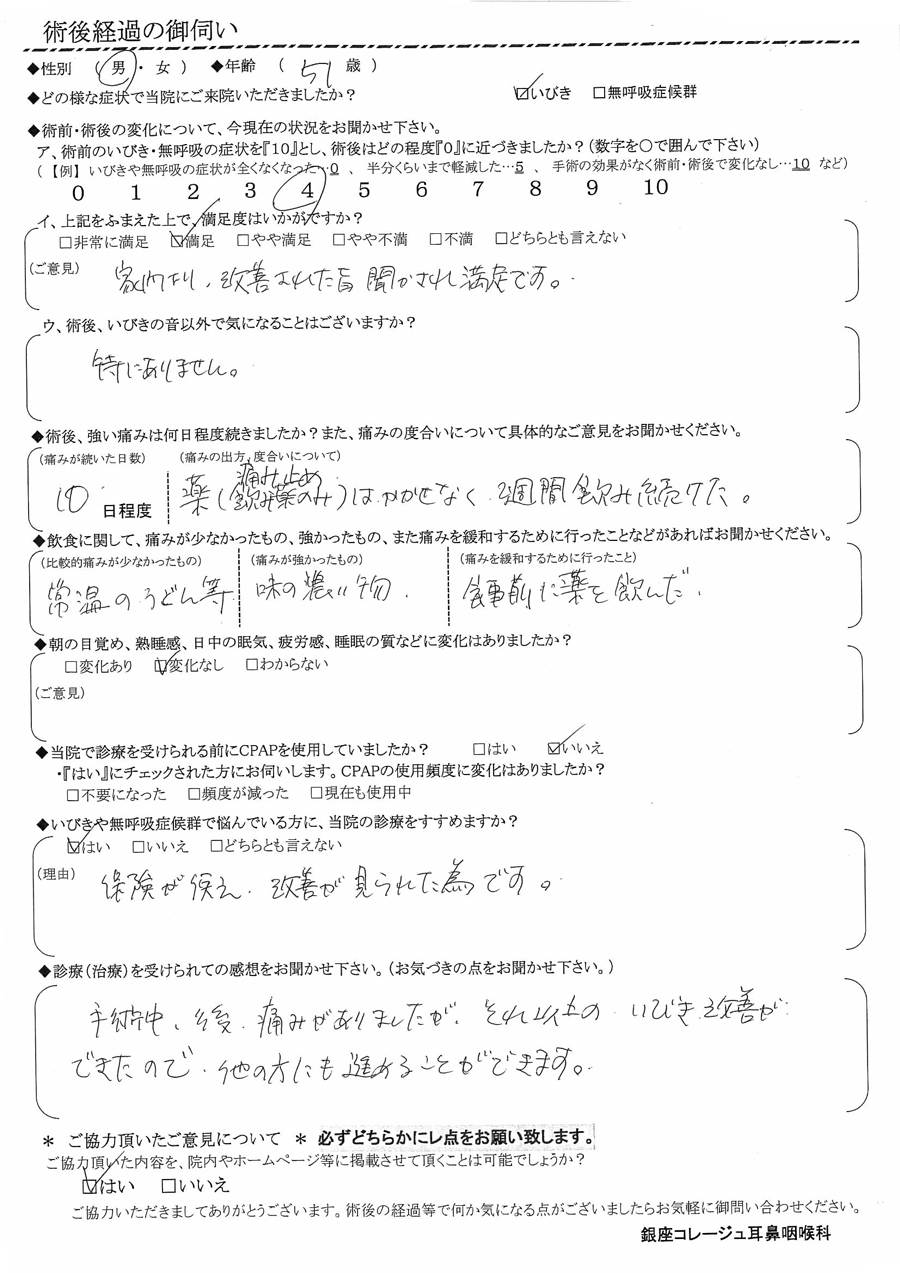 術後経過の御伺い
◆性別 ( 男 ・ 女 ) ◆年齢 ( 51 歳 )
◆どの様な症状で当院にご来院いただきましたか? ☑いびき □無呼吸症候群
◆術前・術後の変化について、今現在の状況をお聞かせ下さい。
ア、術前のいびき・無呼吸の症状を『10』とし、術後はどの程度『0』に近づきましたか?(数字を○で囲んで下さい)
(【例】いびきや無呼吸の症状が全くなくなった…0 、 半分くらいまで軽減した…5 、 手術の効果がなく術前・術後で変化なし…10 など)
0 1 2 3 4 5 6 7 8 9 10
イ、上記をふまえた上で、満足度はいかがですか?
□非常に満足 ☑満足 □やや満足 □やや不満 □不満 □どちらとも言えない
(ご意見)
家内より、改善された旨聞かされ満足です。
ウ、術後、いびきの音以外で気になることはございますか?
特にありません。
◆術後、強い痛みは何日程度続きましたか?また、痛みの度合いについて具体的なご意見をお聞かせください。
(痛みが続いた日数) (痛みの出方、度合いについて)
痛み止め
10 日程度 薬(飲み薬のみ)はかかせなく、2週間飲み続けた。
◆飲食に関して、痛みが少なかったもの、強かったもの、また痛みを緩和するために行ったことなどがあればお聞かせください。
(比較的痛みが少なかったもの) (痛みが強かったもの) (痛みを緩和するために行ったこと)
常温のうどん等 味の濃い物. 食事前に薬を飲んだ.
◆朝の目覚め、熟睡感、日中の眠気、疲労感、睡眠の質などに変化はありましたか?
□変化あり ☑変化なし □わからない
(ご意見)
◆当院で診療を受けられる前にCPAPを使用していましたか? □はい ☑いいえ
・『はい』にチェックされた方にお伺いします。CPAPの使用頻度に変化はありましたか?
□不要になった □頻度が減った □現在も使用中
◆いびきや無呼吸症候群で悩んでいる方に、当院の診療をすすめますか?
☑はい □いいえ □どちらとも言えない
(理由)
保険が使え、改善が見られた為です。
◆診療(治療)を受けられての感想をお聞かせ下さい。(お気づきの点をお聞かせ下さい。)
手術中、後、痛みがありましたが、それ以上の いびき改善が
できたので、他の方にも進めることができます。
＊ ご協力頂いたご意見について ＊ 必ずどちらかにレ点をお願い致します。
ご協力頂いた内容を、院内やホームページ等に掲載させて頂くことは可能でしょうか?
☑はい □いいえ
ご協力いただきましてありがとうございます。術後の経過等で何か気になる点がございましたらお気軽に御問い合わせください。
銀座コレージュ耳鼻咽喉科